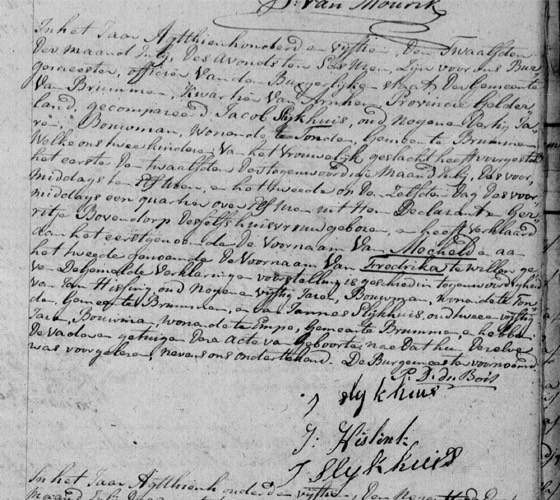 D. van Mourik
In het Jaar Agtthienhonderd en vyfthien, den Twaalfden
der maand July, des avonds ten Ses Uren, Zijn voor ons Bur
gemeester, officier van den Burgerlyken staat, des Gemeente
van Brummen, Kwartier van Arnhem, Provincie Gelder
land, gecompareerd Jacob Slykhuis, oud negen en dertig Ja
ren, Bouwman, wonende te Tonden, Gemeente Brummen
Welke ons twee kinderen van het vrouwelyk geslacht heeft voorgesteld
het eerste den twaalfden des tegenwoordige maand July, des voor
middags ten Elf Uren, en het tweede op den Zelfden dag des voor
middags een quartier over Elf Uren uit Hem Declarant en Ger
ritje Bovendorp deszelfs huisvrouw geboren, en heeft verklaard
dan het eerstgenoemde de Voornaam van Mechteld en aan
het tweede genoemde de Voornaam van Fredrika te willen ge
ven De gemelde verklaring en voorstelling is geschied in tegenwoordigheid
van Jan Hisling, oud negen en vyftig Jaren, Bouwman, wonende te Ton
den, Gemeente Brummen, en van Jannes Slykhuis, oud twee en vyftig
Jaren, Bouwman, wonende te Empe, Gemeente Brummen, en hebben
de vader en getuigen deze acte van geboorte, na dat hun dezelve
was voorgelezen, nevens ons ondertekend. De Burgemeester voornoemd
P. D. du Bois
J slykhuis
J: Hislink
J Slykhuis
In het Jaar Agtthienhonderd en vyfthien, den